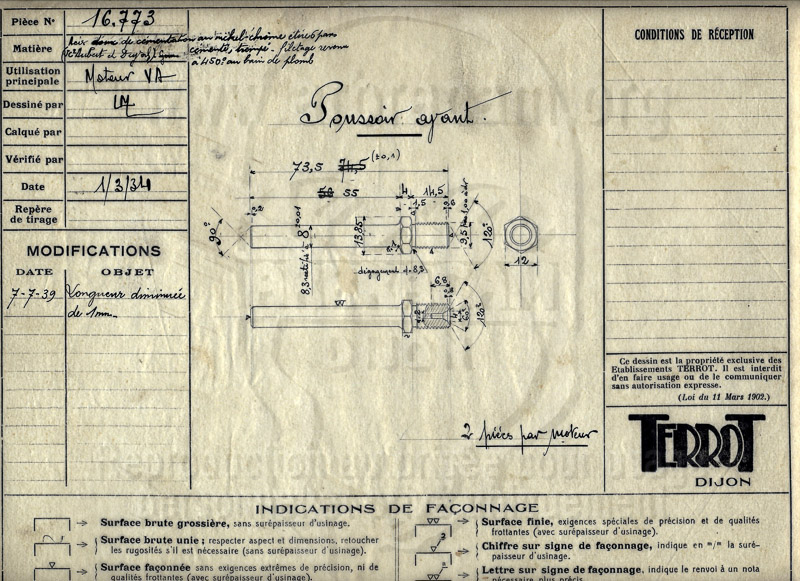 Pièce No 16.773
Matière
cémenté, trempé - filetage revenu
à 450° au bain de plomb
Utilisation principale Moteur VA
Dessiné par
Calqué par
Vérifié par
Date 1/3/34
Repère de tirage
MODIFICATIONS
DATE OBJET
7-7-39 Longueur diminuée
de 1mm
Poussoir ayant.
73,5 74,5 (±0,1)
58 55 4 14,5
1,5
90°
13,85
120°
12
dégagement
6,8
60°
120°
2 pièces par moteur
CONDITIONS DE RÉCEPTION
Ce dessin est la propriété exclusive des
Etablissements TERROT. Il est interdit
d'en faire usage ou de le communiquer
sans autorisation expresse.
(Loi du 11 Mars 1902.)
TERROT
DIJON
INDICATIONS DE FAÇONNAGE
Surface brute grossière, sans surépaisseur d'usinage.
Surface brute unie ; respecter aspect et dimensions, retoucher
les rugosités s'il est nécessaire (sans surépaisseur d'usinage).
Surface façonnée sans exigences extrêmes de précision, ni de
qualités frottantes (avec surépaisseur d'usinage).
Surface finie, exigences spéciales de précision et de qualités
frottantes (avec surépaisseur d'usinage).
Chiffre sur signe de façonnage, indique en m/m la suré-
paisseur d'usinage.
Lettre sur signe de façonnage, indique le renvoi à un nota
nécessaire plus précis.